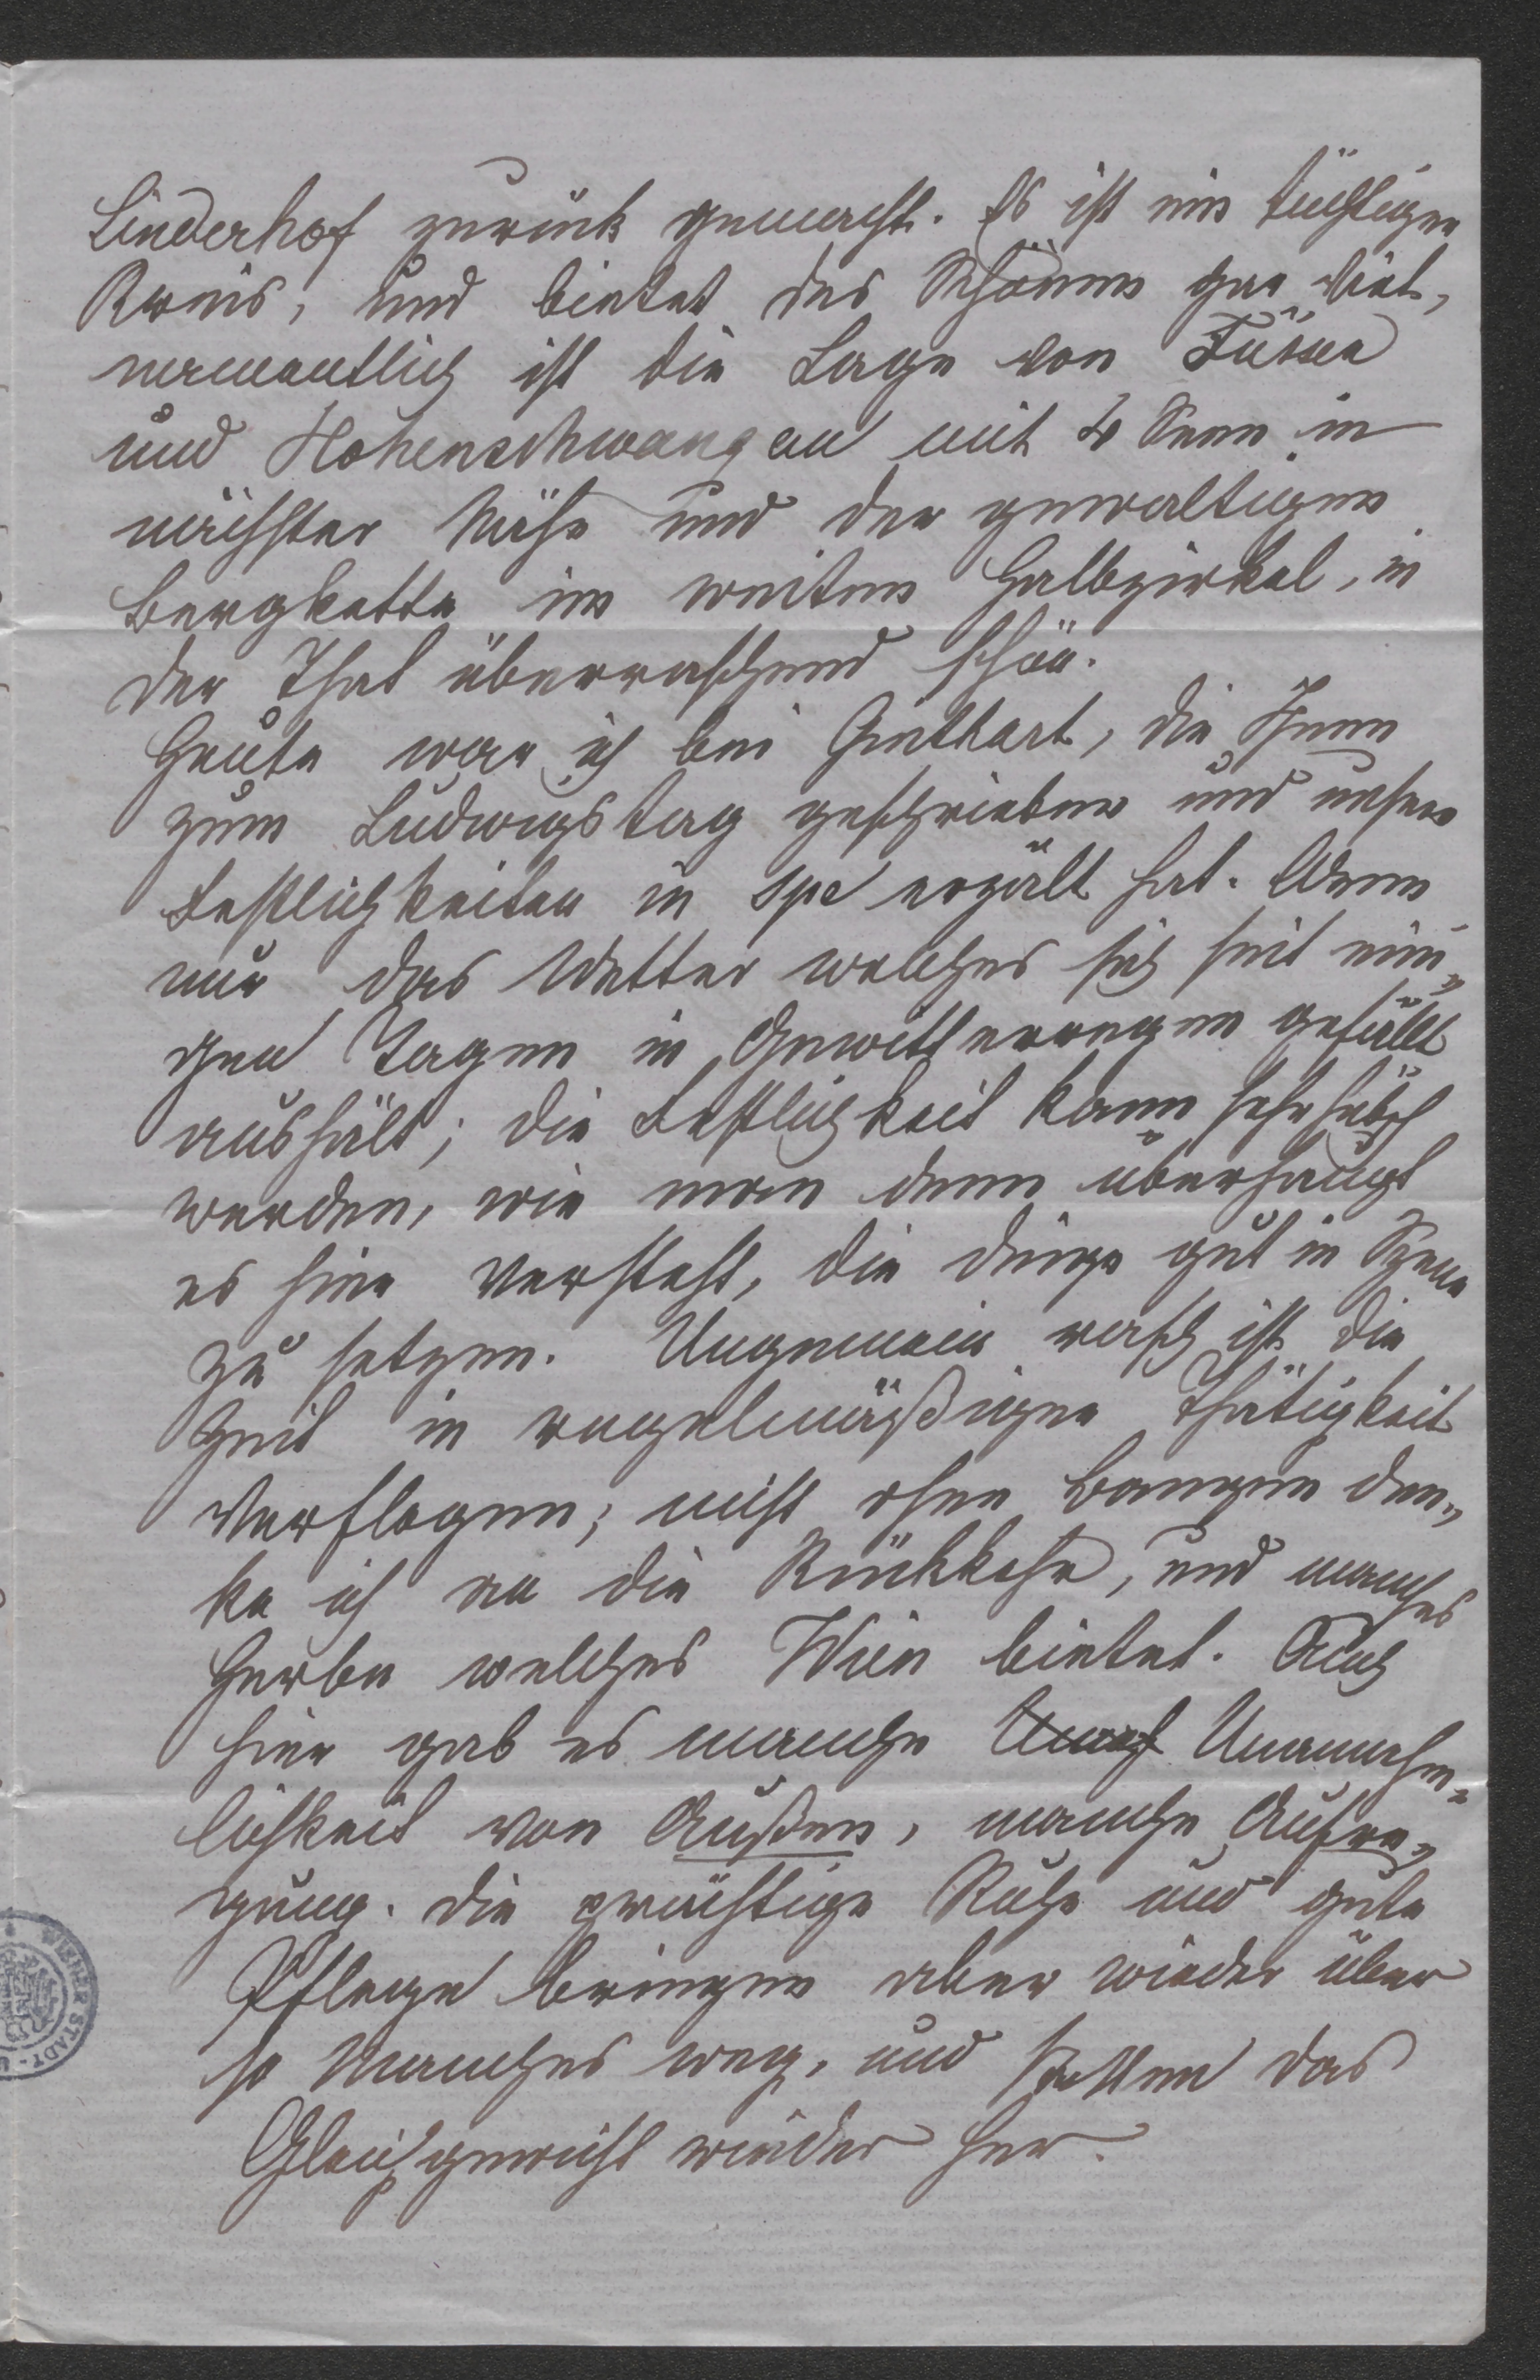 Linderhof zurück gemacht. Es ist ein tüchtiger
Kreis, und bietet des Schönen gar viel,
namentlich ist die Lage von Füssen
und Hohenschwangau mit 4 Seen in
nächster Nähe und der gewaltigen
Bergkette im weiten Halbzirkel, in
der That überraschend schön.
Heute war ich bei Giethart, die Ihnen
zum Ludwigstag geschrieben und unsere
Festlichkeiten in spe erzält hat. Wenn
nur das Wetter welches sich seit eini„
gen Tagen in Gewitterregen gefällt
aushält; die Festlichkeit kann sehr hübsch
werden, wie man denn überhaupt
es hier versteht, die Dinge gut in Szene
zu setzen. Ungemein rasch ist die
Zeit in regelmäßiger Thätigkeit
verflogen; nicht ohne Bangen den„
ke ich an die Rückkehr, und manches
Herbe welches Wien bietet. Auch
hier gab es manche Unannehm„
lichkeit von Außen, manche Aufre„
gung. Die prächtige Ruhe und gute
Pflege bringen aber wieder über
so Manches weg, und stellen das
Gleichgewicht wieder her.
WIENER STADT-